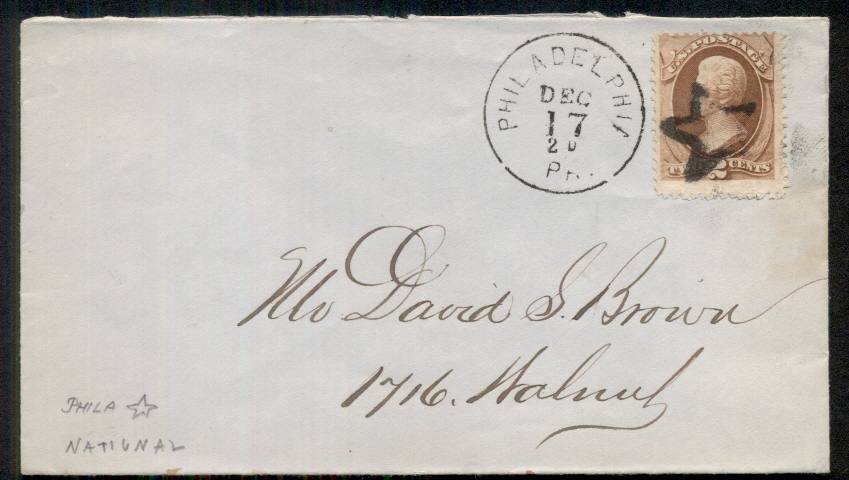 PHILADELPHIA
DEC
17
PA.
U.S. POSTAGE
2 CENTS
Mr David S. Brown
1716. Walnut
PHILA
NATIONAL